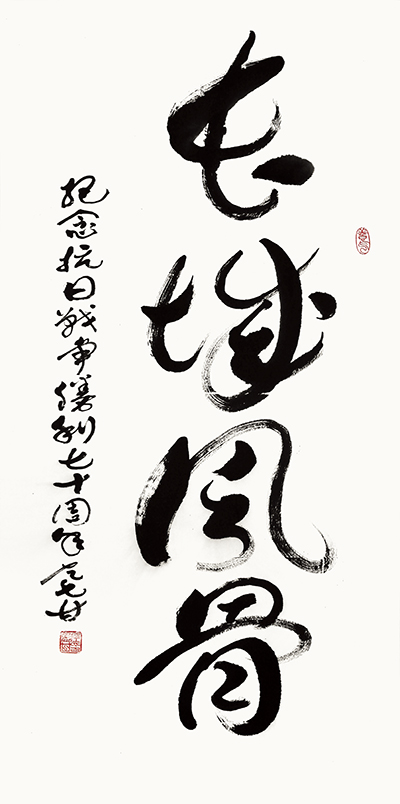 长城风骨
纪念抗日战争胜利七十周年